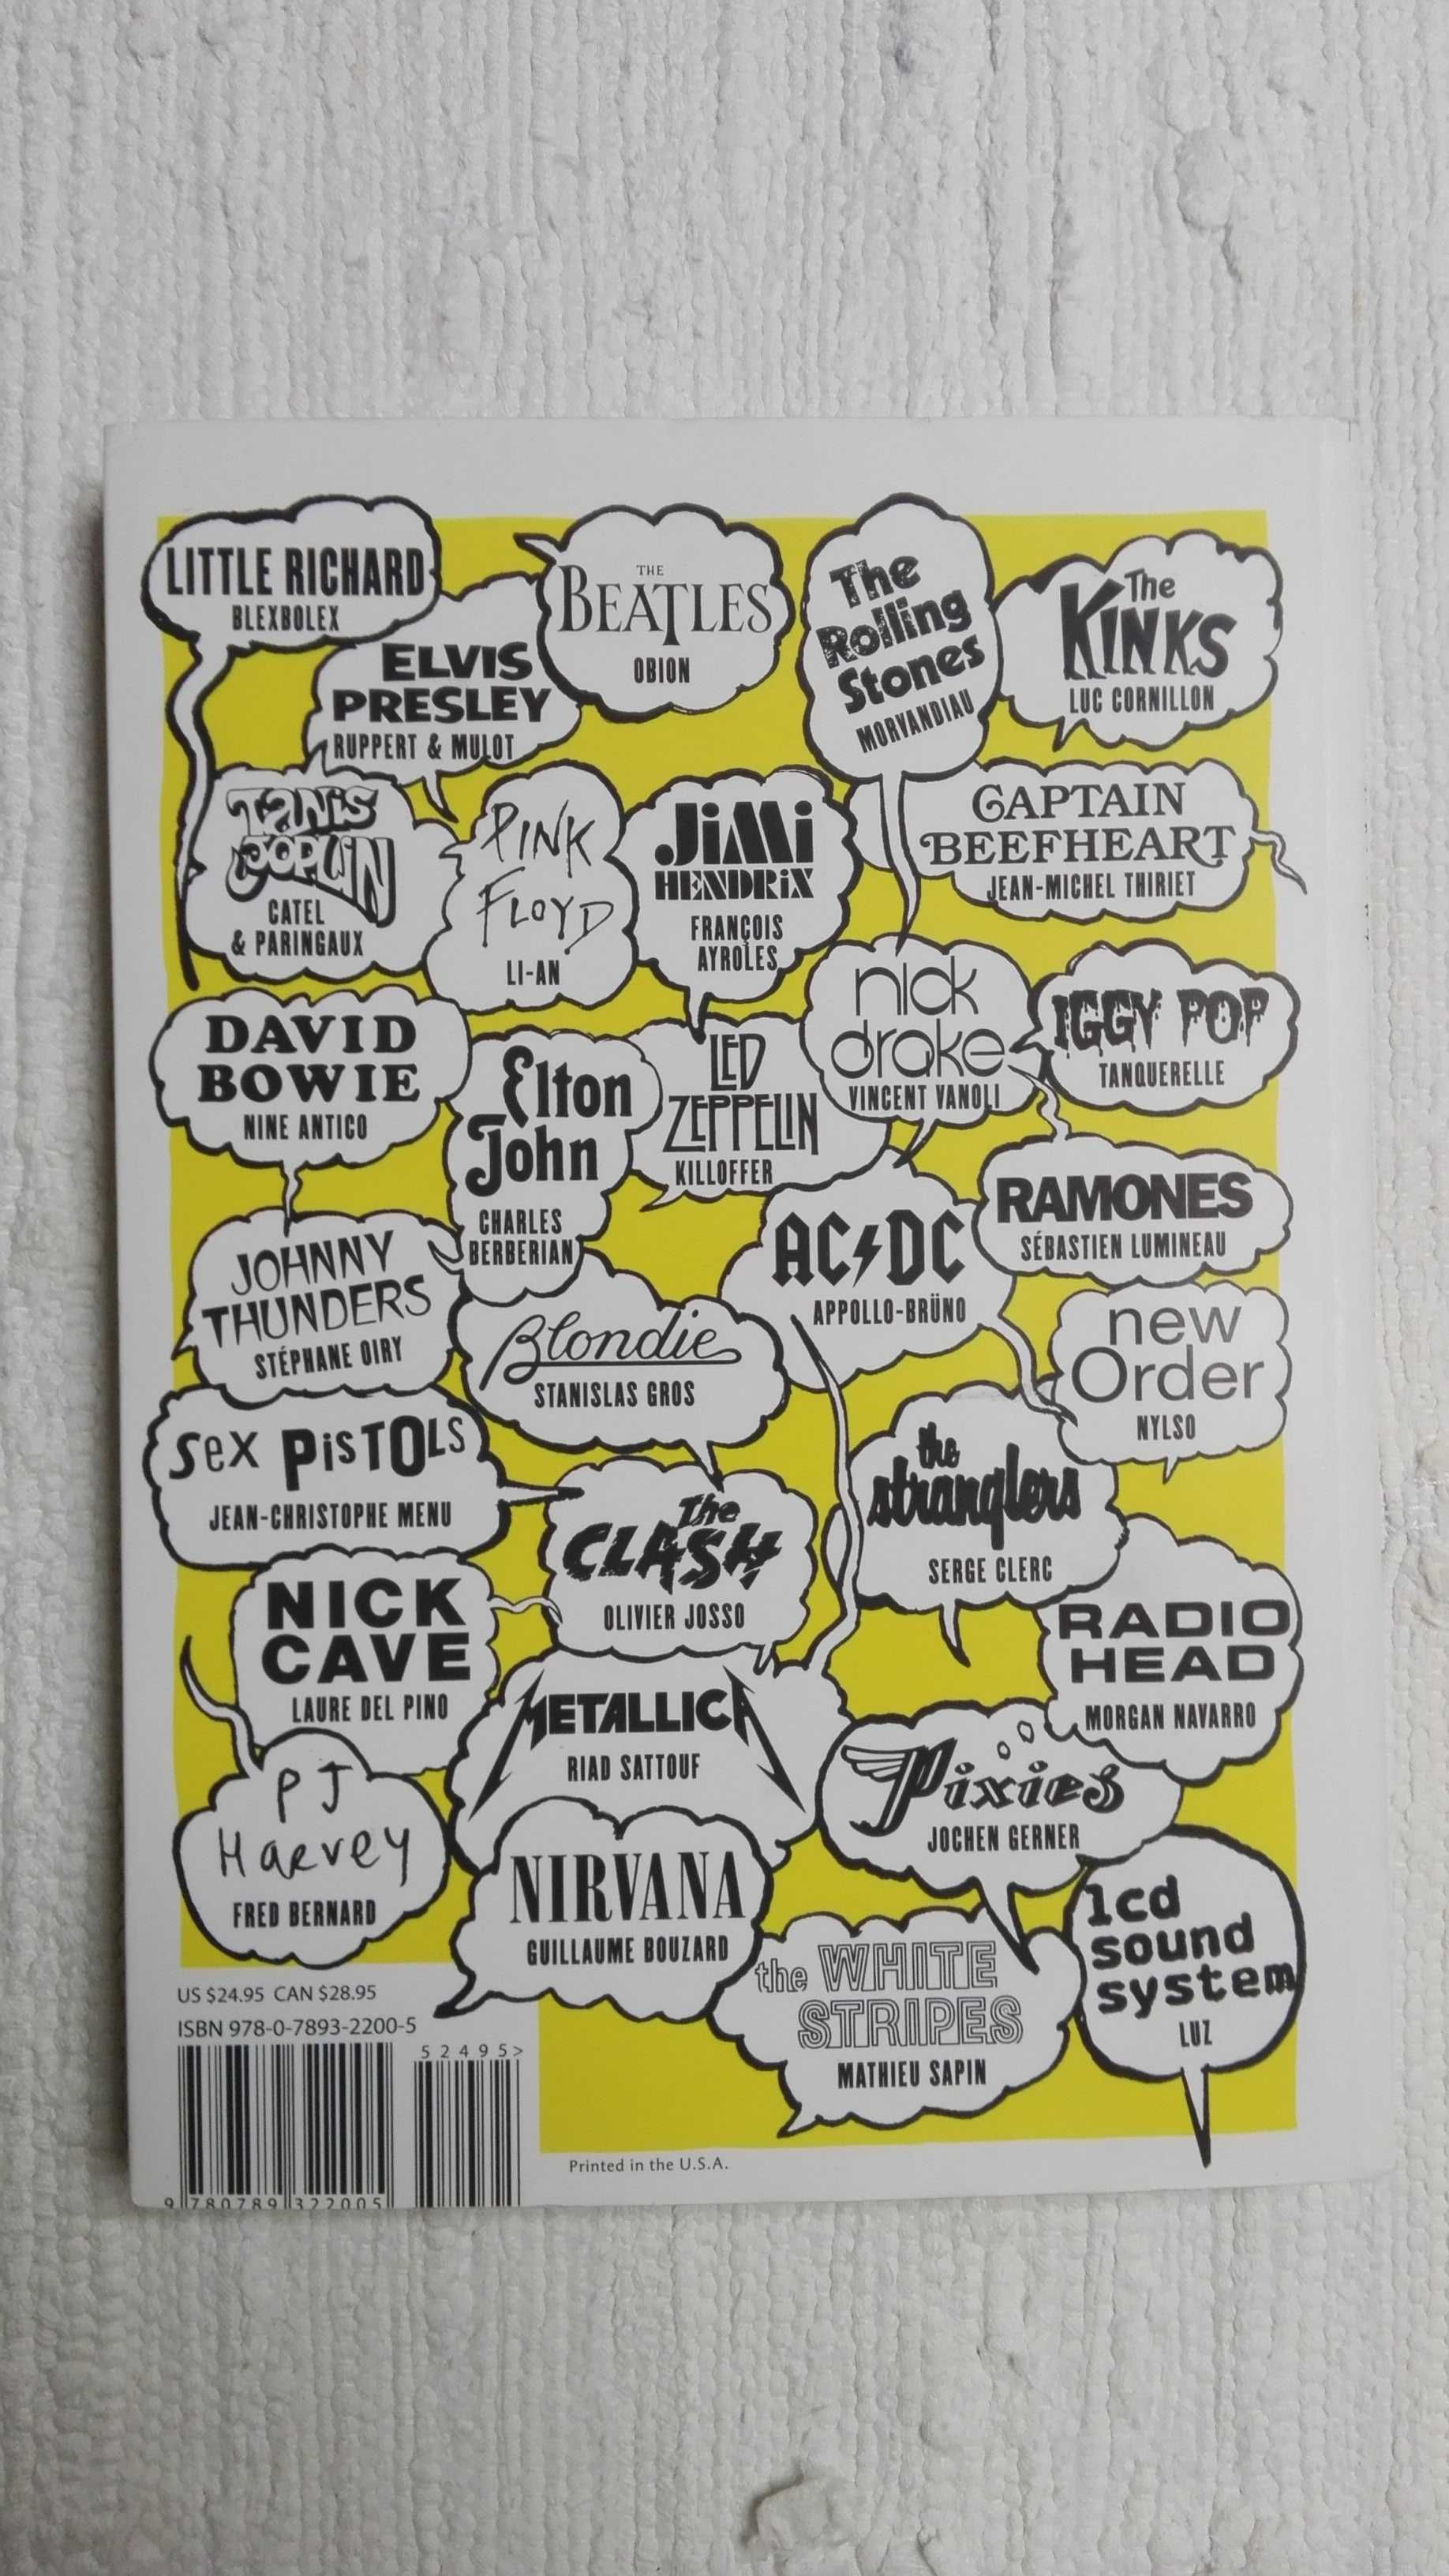 LITTLE RICHARD
BLEXBOLEX
ELVIS
PRESLEY
RUPPERT & MULOT
THE
BEATLES
OBION
The
Rolling
Stones
MORVANDIAU
The
KINKS
LUC CORNILLON
JANIS
JOPLIN
CATEL
& PARINGAUX
PINK
FLOYD
LI-AN
JiMi
HENDRiX
FRANÇOIS
AYROLES
CAPTAIN
BEEFHEART
JEAN-MICHEL THIRIET
DAVID
BOWIE
NINE ANTICO
Elton
John
CHARLES
BERBERIAN
LED
ZEPPELIN
KILLOFFER
nick
drake
VINCENT VANOLI
IGGY POP
TANQUERELLE
JOHNNY
THUNDERS
STÉPHANE OIRY
Blondie
STANISLAS GROS
AC⚡DC
APPOLLO-BRÜNO
RAMONES
SÉBASTIEN LUMINEAU
new
Order
NYLSO
Sex PiSTOLS
JEAN-CHRISTOPHE MENU
The
CLASH
OLIVIER JOSSO
the
stranglers
SERGE CLERC
NICK
CAVE
LAURE DEL PINO
METALLICA
RIAD SATTOUF
RADIO
HEAD
MORGAN NAVARRO
PJ
Harvey
FRED BERNARD
NIRVANA
GUILLAUME BOUZARD
Pixies
JOCHEN GERNER
the WHITE
STRIPES
MATHIEU SAPIN
lcd
sound
system
LUZ
US $24.95 CAN $28.95
ISBN 978-0-7893-2200-5
52495>
9 780789 322005
Printed in the U.S.A.